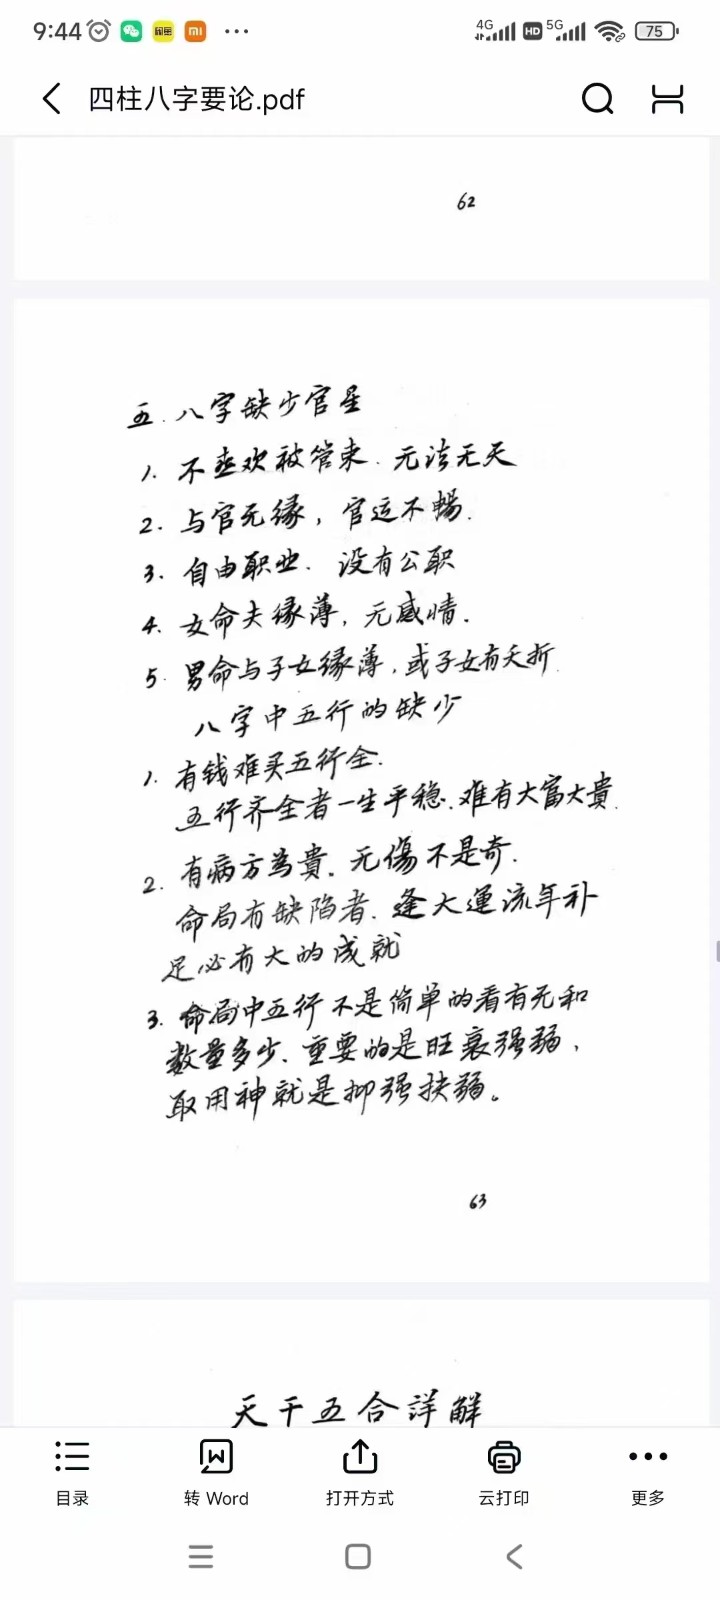 9:44
4G HD 5G 75
四柱八字要论.pdf
62
五.八字缺少官星
1. 不喜欢被管束.无法无天
2. 与官无缘，官运不暢.
3. 自由职业. 没有公职
4. 女命夫缘薄，无感情.
5. 男命与子女缘薄,或子女有夭折.
八字中五行的缺少
1. 有钱难买五行全.
五行齐全者一生平稳.难有大富大貴.
2. 有病方為貴.无傷不是奇.
命局有缺陷者.逢大運流年补
足必有大的成就
3. 命局中五行不是简单的看有无和
数量多少.重要的是旺衰强弱，
取用神就是抑强扶弱。
63
天干五合詳解
目录
转 Word
打开方式
云打印
更多